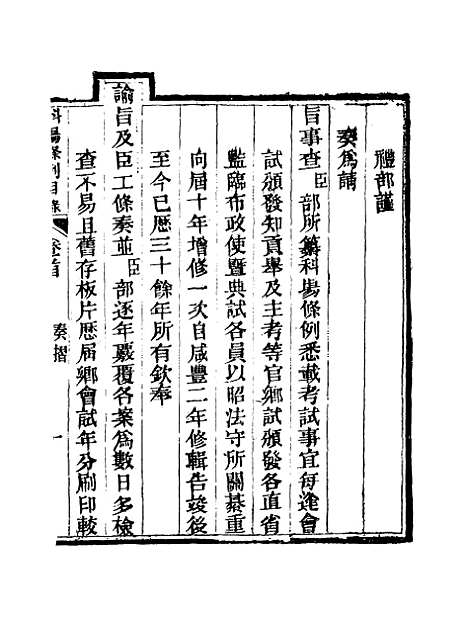 禮部謹
奏爲請
旨事查臣部所纂科場條例悉載考試事宜每逢會
試頒發知貢舉及主考等官鄉試頒發各直省
監臨布政使曁典試各員以昭法守所關綦重
向屆十年增修一次自咸豐二年修輯告竣後
至今已歷三十餘年所有欽奉
諭旨及臣工條奏並臣部逐年覈覆各案爲數日多檢
查不易且舊存板片歷屆鄉會試年分刷印較
科場條例目錄 卷首 奏摺 一